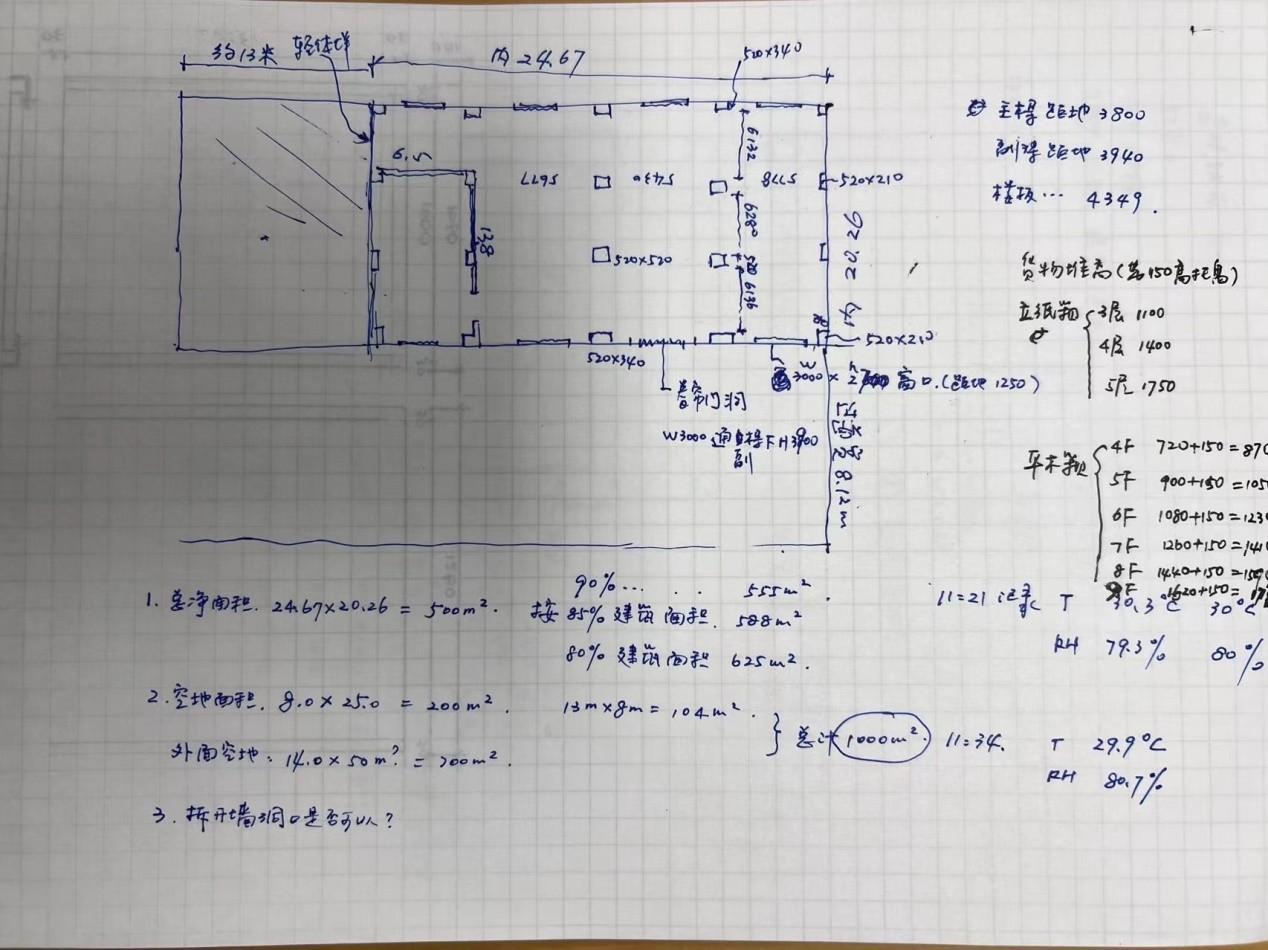 约13米
轻体墙
内24.67
520×340
6.5
13.8
5677
5430
5778
6132
6280
520
6136
520×210
内20.26
520×520
520×210
520×340
卷帘门洞
W3000通 梁下H3900
副
W3000× 窗口.(距地1250)
空地宽8.12m
主梁距地3800
副梁距地3940
楼板… 4349.
货物堆高(若150高托盘)
立纸箱
3层 1100
4层 1400
5层 1750
平木箱
4F 720+150=870
5F 900+150=105
6F 1080+150=123
7F 1260+150=141
8F 1440+150=159
9F 1620+150=17
1. 总净面积. 24.67×20.26 = 500m².
90%… . . 555m²
按85%建筑面积. 588m²
80%建筑面积 625m².
2. 空地面积. 8.0×25.0 = 200m². 13m×8m=104m².
外面空地: 14.0×50m? = 700m².
总计 1000m².
3. 拆开墙洞口是否可以?
11=21 记录 T 30.3℃ 30℃
RH 79.3% 80%
11=34. T 29.9℃
RH 80.7%